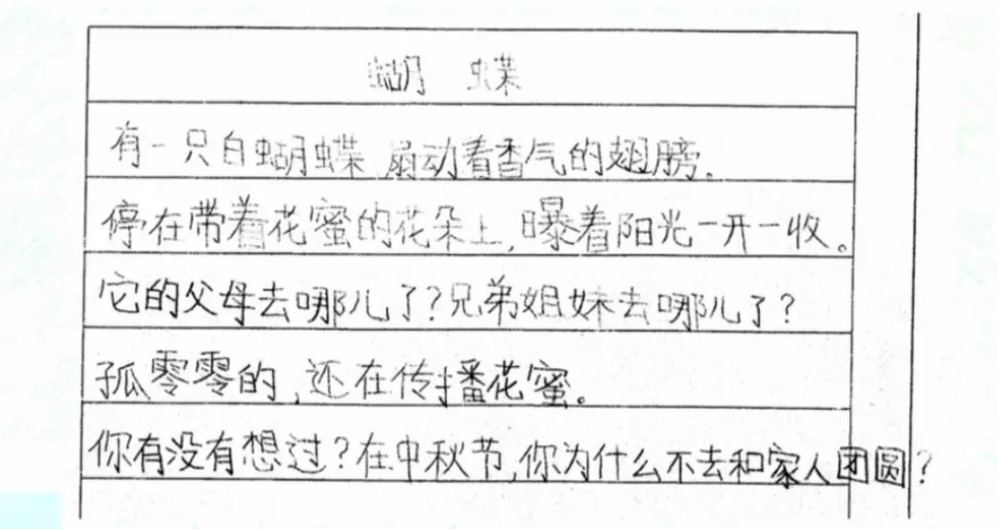 蝴 蝶
有一只白蝴蝶,扇动着香气的翅膀。
停在带着花蜜的花朵上,曝着阳光一开一收。
它的父母去哪儿了?兄弟姐妹去哪儿了?
孤零零的,还在传播花蜜。
你有没有想过?在中秋节,你为什么不去和家人团圆?